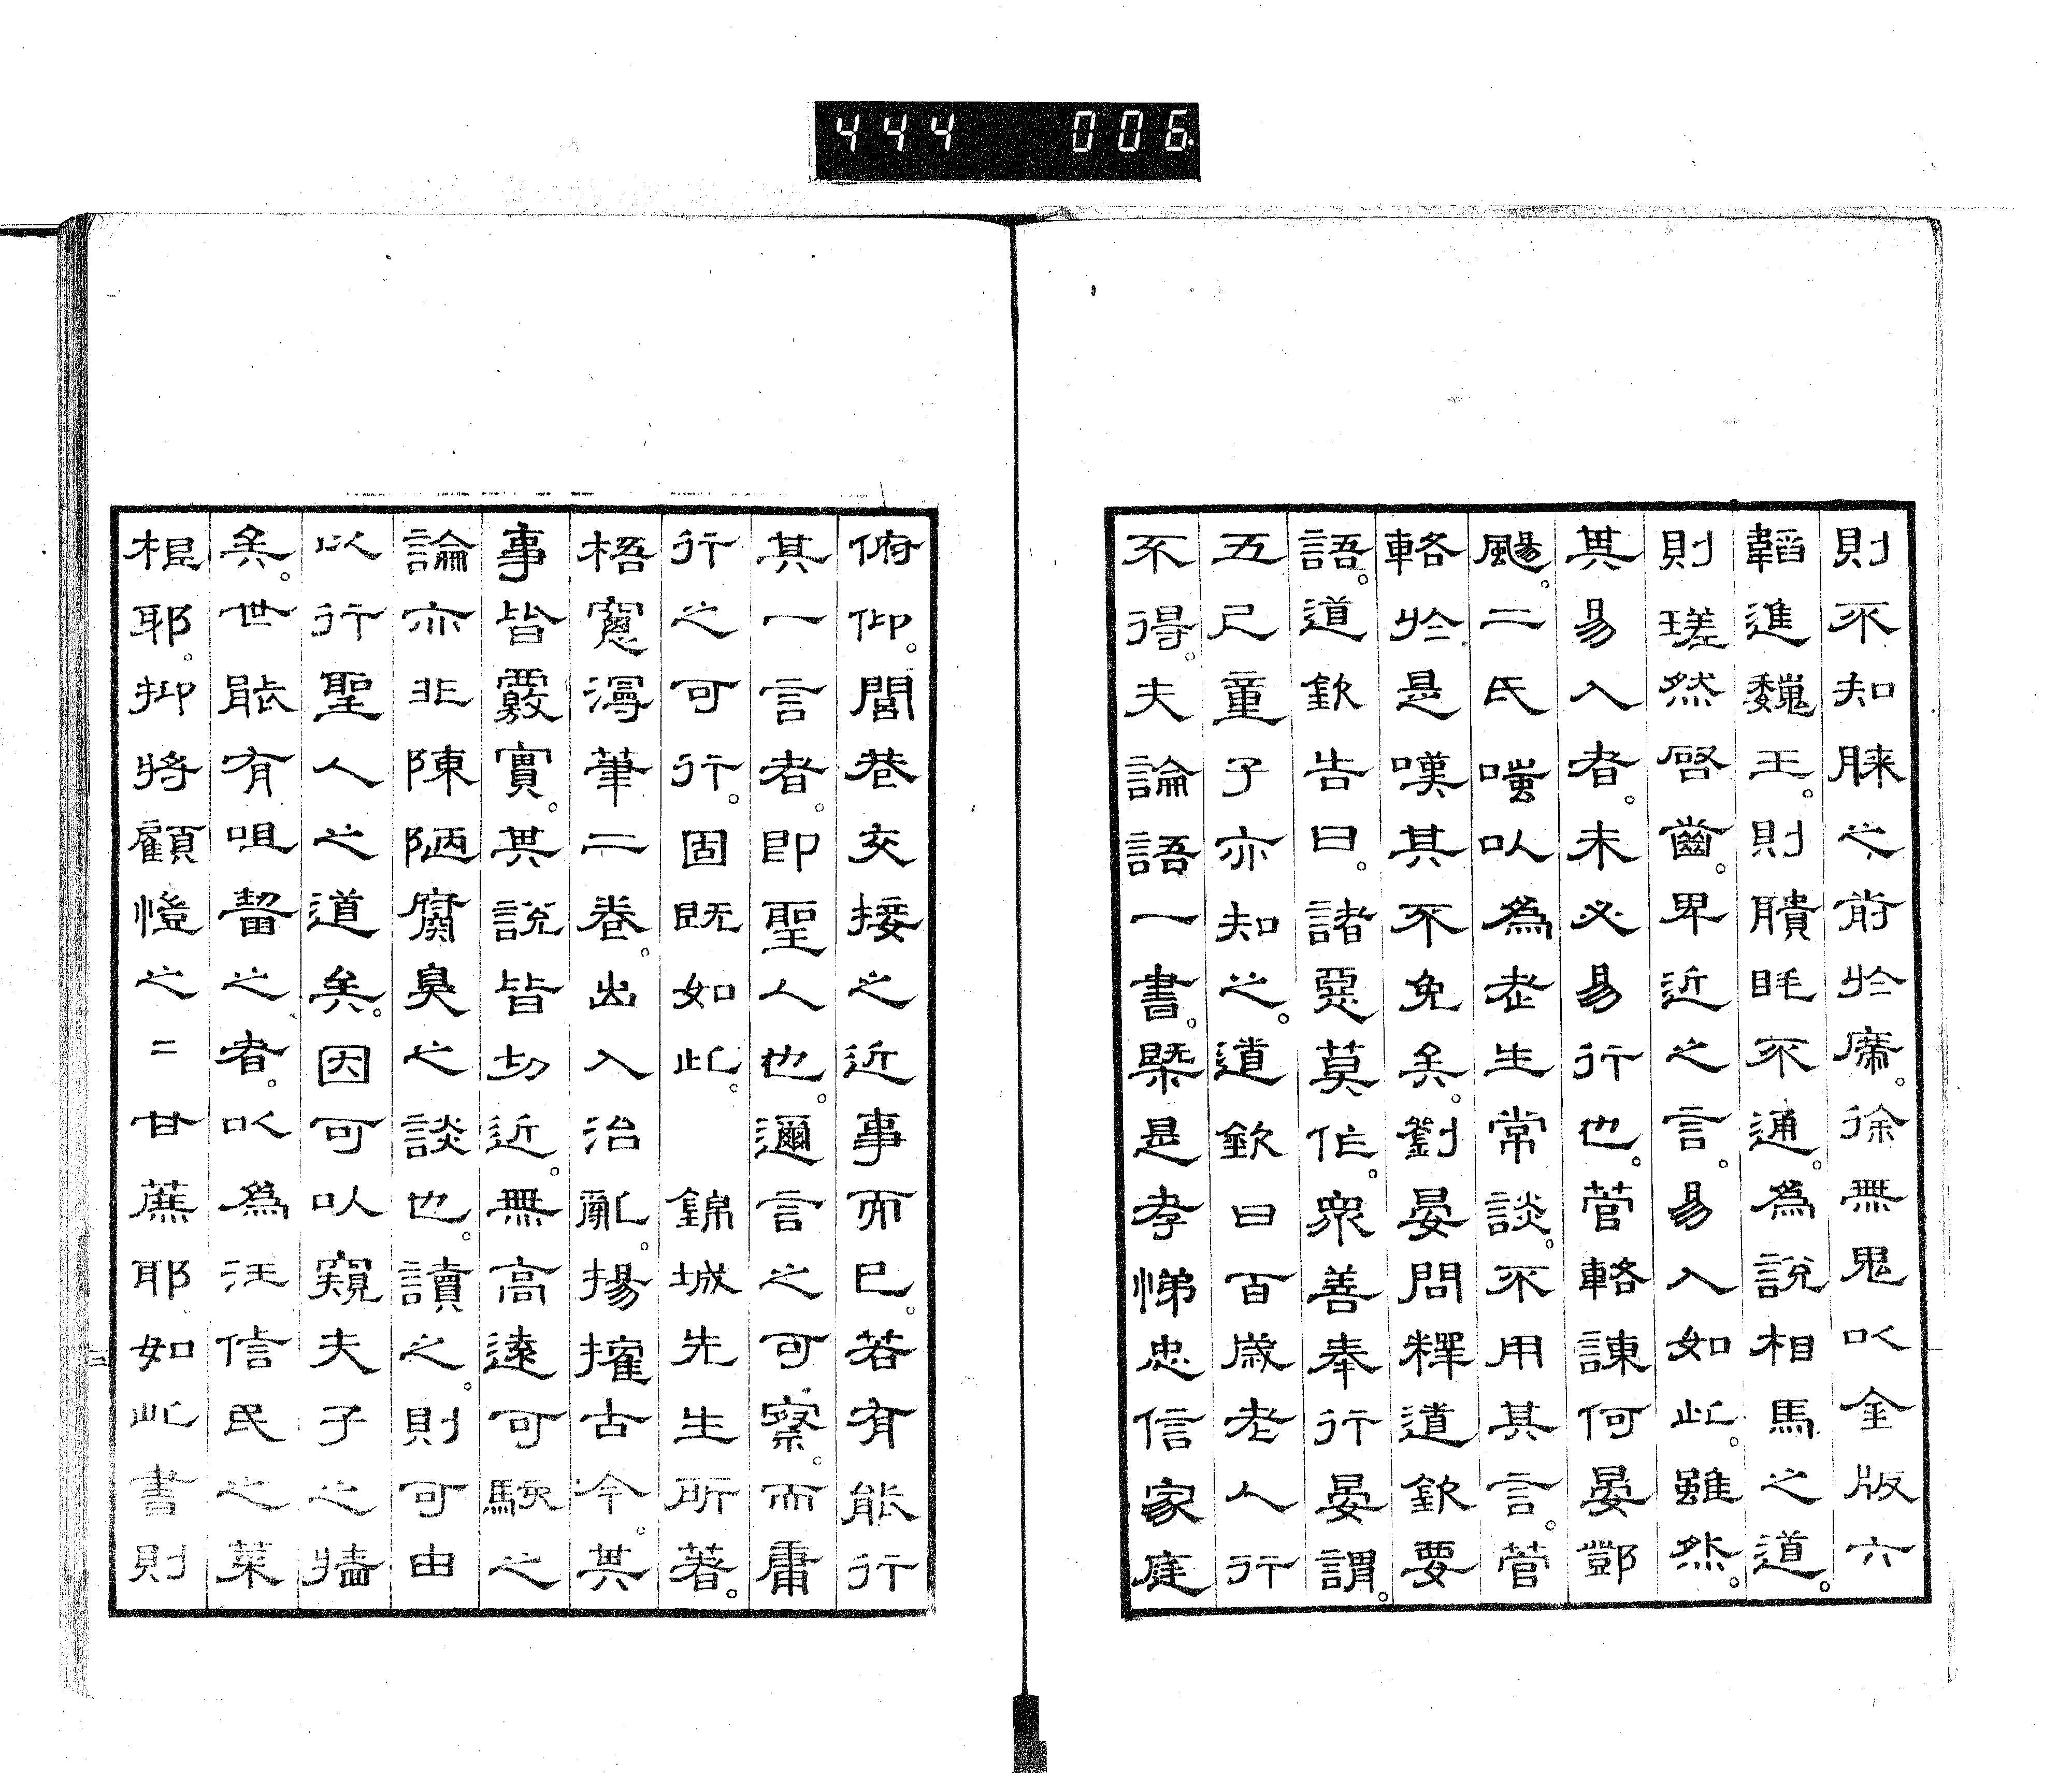 444 006
則不知睞之前於席。徐無鬼以金版六
韜進魏王。則聵眊不通。為說相馬之道。
則瑳然啓齒。卑近之言。易入如此。雖然。
其易入者。未必易行也。管輅諫何晏鄧
颺。二氏嗤以為老生常談。不用其言。管
輅於是嘆其不免矣。劉晏問釋道欽要
語。道欽告曰。諸惡莫作。衆善奉行。晏謂。
五尺童子亦知之。道欽曰百歲老人行
不得。夫論語一書。槩是孝悌忠信家庭
俯仰。閭巷交接之近事而已。若有能行
其一言者。即聖人也。邇言之可察。而庸
行之可行。固既如此。錦城先生所著。
梧窻漫筆二卷。出入治亂。揚搉古今。其
事皆覈實。其說皆切近。無高遠可駭之
論。亦非陳陋腐臭之談也。讀之。則可由
以行聖人之道矣。因可以窺夫子之牆
矣。世能有咀齧之者。以為汪信民之菜
根耶。抑將顧愷之之甘蔗耶。如此書則
三